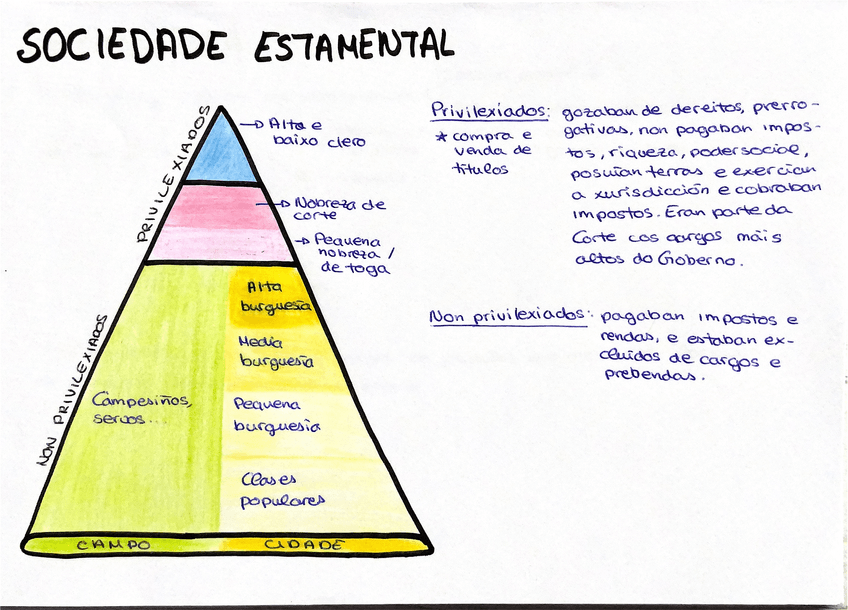 SOCIEDADE ESTAMENTAL
PRIVILEXIADOS
Alta e
baixo clero
Nobreza de
corte
Pequena
nobreza /
de toga
NON PRIVILEXIADOS
Campesiños,
servos...
Alta
burguesía
Media
burguesía
Pequena
burguesía
Clases
populares
CAMPO
CIDADE
Privilexiados: gozaban de dereitos, prerro-
gativas, non pagaban impos-
tos, riqueza, poder social,
posuían terras e exercían
a xurisdicción e cobraban
impostos. Eran parte da
Corte cos cargos máis
altos do Goberno.
* compra e
venda de
títulos
Non privilexiados: pagaban impostos e
rendas, e estaban ex-
cluídos de cargos e
prebendas.